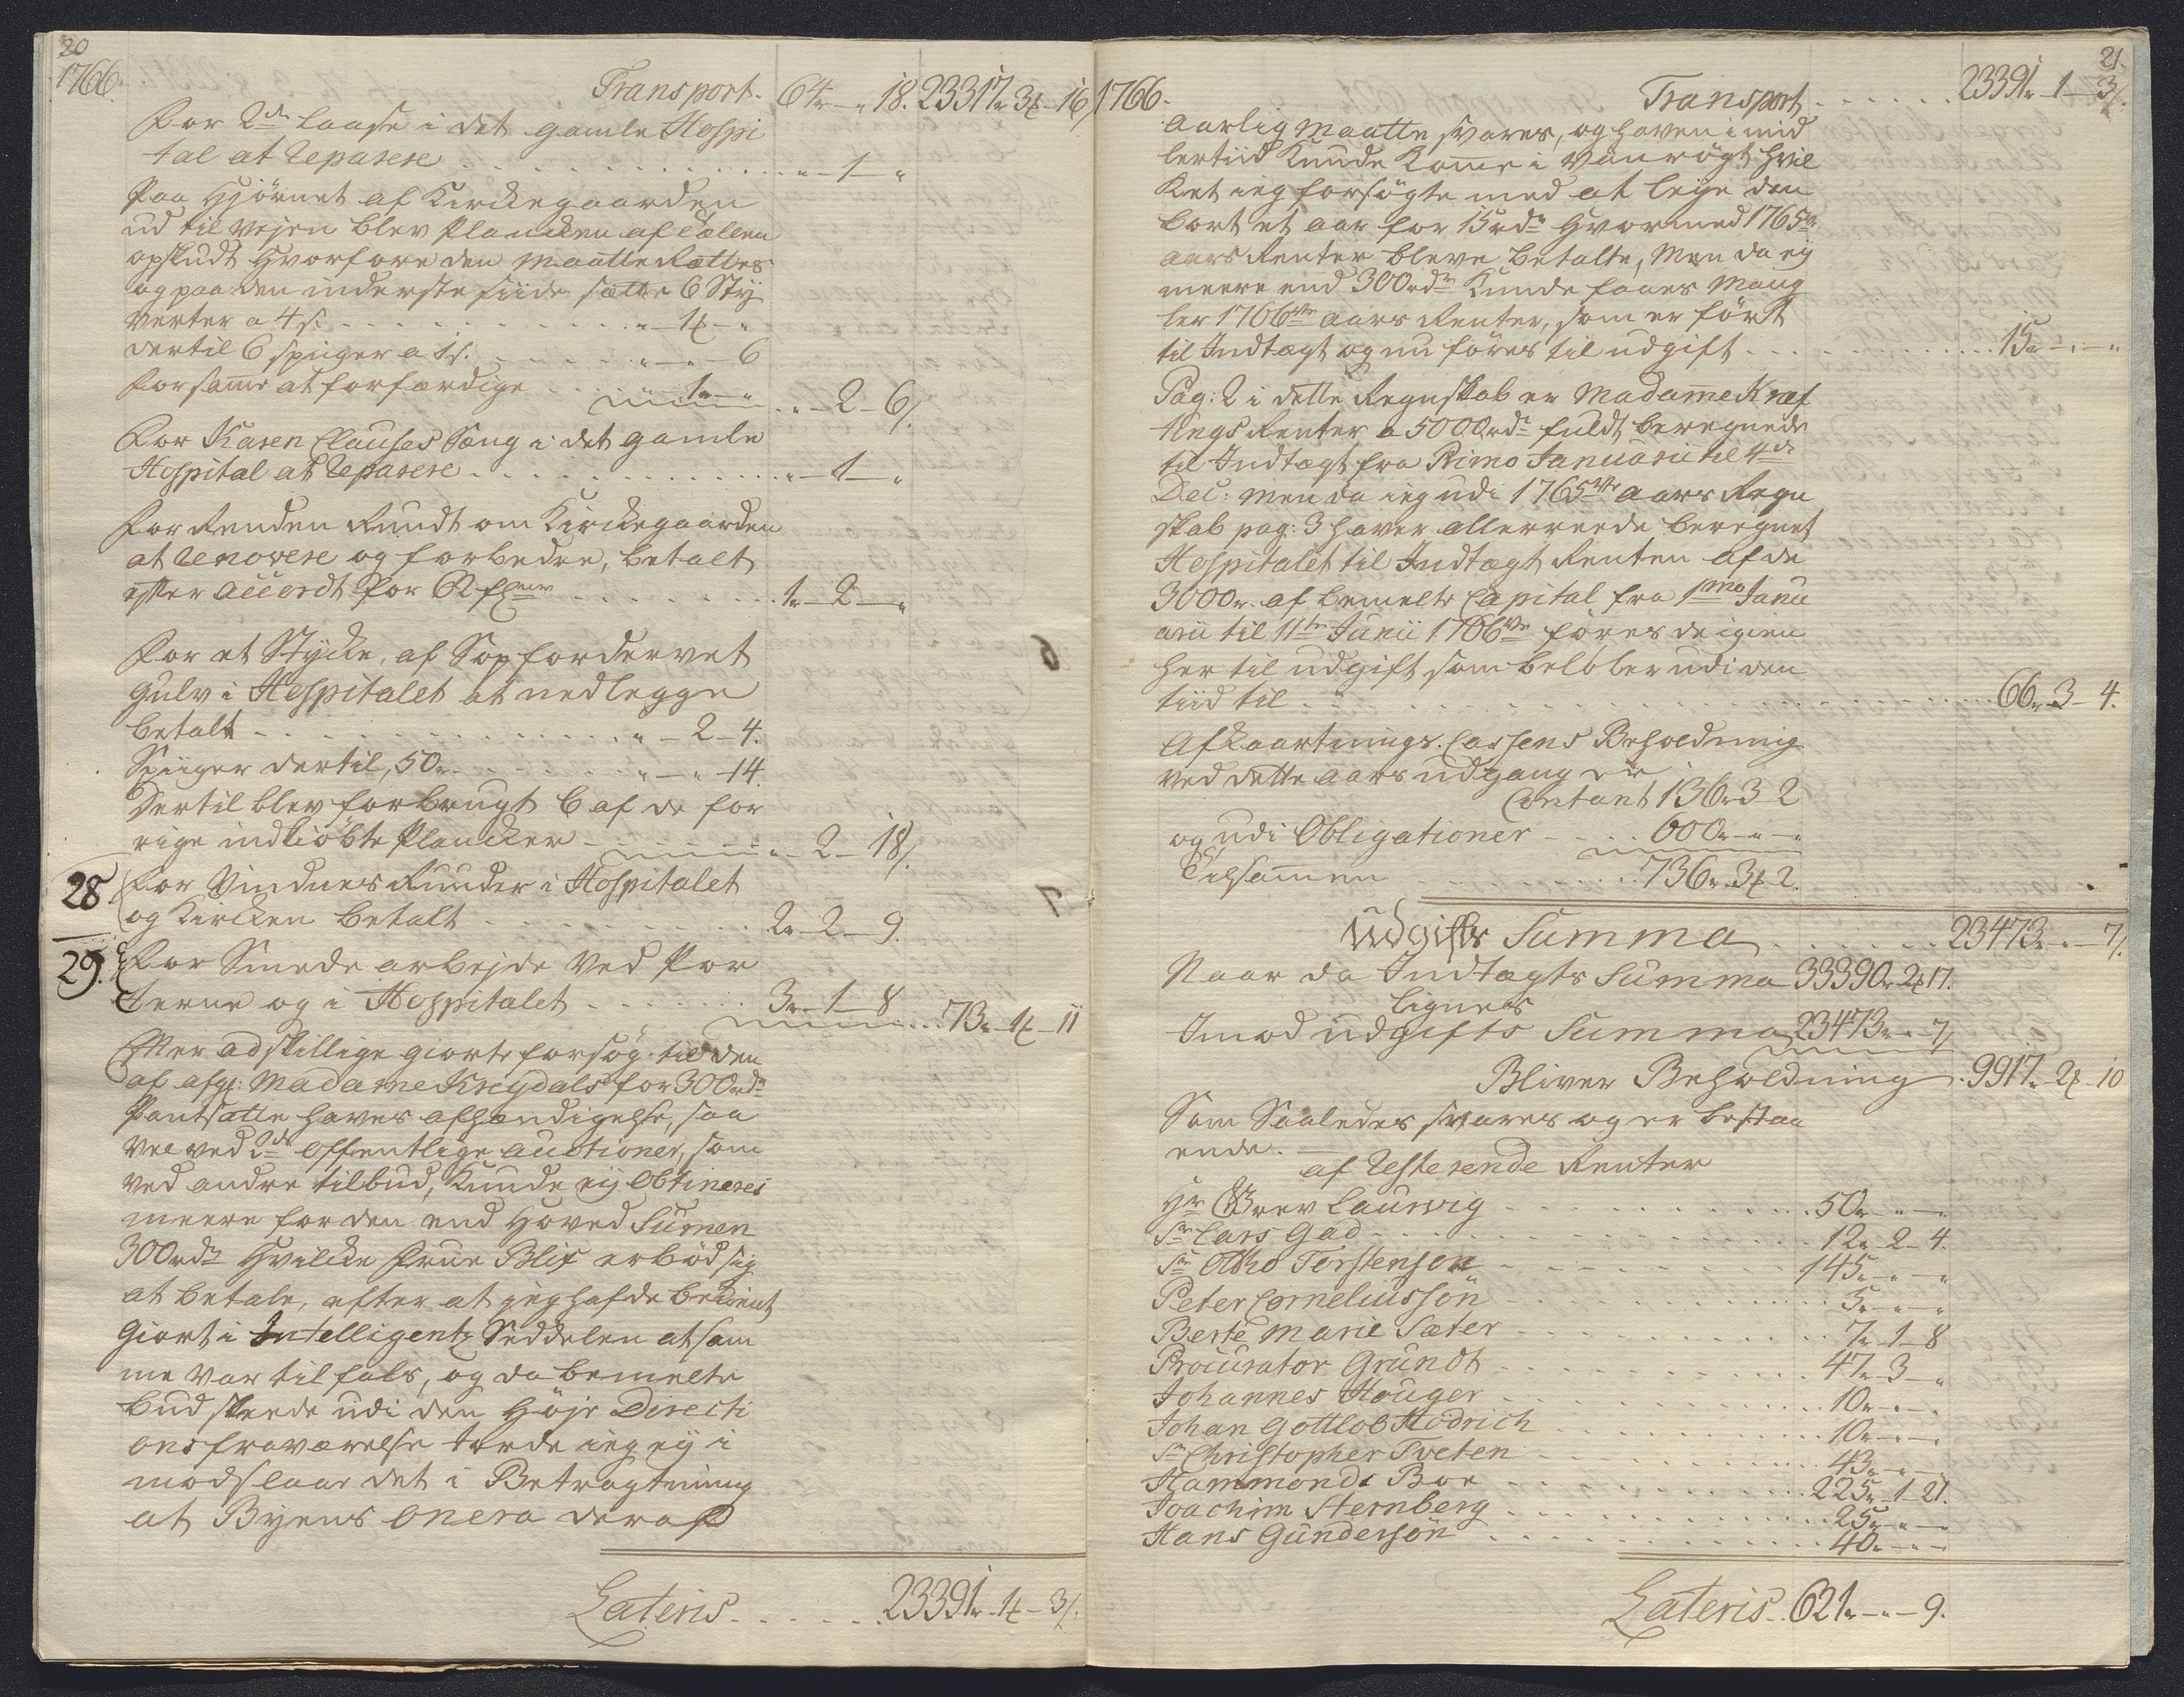 20
1766.
Transport. 64r - " 18. 23317r 3# - 16/
For 2de Laase i det gamle Hospi
tal at Reparere . . . . . " - 1 - "
Paa Hjørnet af Kirkegaarden
ud til Vejen blev Plancken af
opskudt Hvorfore den maatte Rættes
og paa den inderste siide sætte 6 Sty
verter a 4 s. . . . . " - 1# - "
dertil 6 spiiger a 1 s. . . . . " - " - 6
For samme at forfærdige . . . . " 1 - " . . " - 2 - 6/.
For Karen Clauses Seng i det gamle
Hospital at Reparere . . . . . " - 1 - "
For Renden Rundt om Kirckegaarden
at Renovere og forbedre, betalt
efter accordt for . . . . . 1r - 2 - "
For et Stycke, af Sop fordervet
gulv i Hospitalet at nedlegge
betalt . . . . . " - 2 - 4.
Spiiger dertil, 50 . . . . . " - " - 14.
Dertil blev forbrugt 6 af de for
rige indkiøbte Plancker . . . . . " - 2 - 18/.
28 For Vinduers Ruuder i Hospitalet
og Kircken betalt . . . . . 2r - 2 - 9.
29. For Smede arbejde ved Por
terne og i Hospitalet . . . . . 3r - 1 - 8 . . 73r - 1# - 11
Efter adskillige giorte forsøg til den
af afg: Madame Kreydals for 300rdr
Pantsatte haves afhændigelse, saa
vel ved 2de offentlige auctioner, som
ved andre tilbud, kunde ej obtineres
meere for den end Hoved Sumen
300rdr Hvilcke Frue Blix erbød sig
at betale, efter at jeg hafde bekient
giort i Intelligentz Seddelen at sam
me var til fals, og da bemelte
bud skeede udi den Høje Directi
ons fraværelse torde ieg ej i
modslaae det i Betragtning
at Byens onera deraf
Lateris . . . . . 23391r - 1# - 3/.
21.
1766.
Transport . . . . . 23391r - 1 - 3/.
aarlig maatte svares, og haven i mid
lertiid kunde komme i Vanrøgt hvil
ket ieg forsøgte med at leje den
bort et aar for 15rdr Hvormed 1765tr
aars Renter bleve betalte, Men da ej
meere end 300rdr kunde faaes mang
ler 1766tr aars Renter, som er ført
til Indtægt og nu føres til udgift . . . . . 15r - " - "
Pag: 2 i dette Regnskab er Madame Kræf
tings Renter a 5000rdr fuldt beregnede
til Indtægt fra Primo Januarii til 4de
Dec: men da ieg udi 1765tr aars Regn
skab pag: 3 haver allerreede beregnet
Hospitalet til Indtægt Renten af de
3000r. af bemelte Capital fra 1mo Janu
arii til 11te Junii 1766tr føres de igien
her til udgift som beløber udi den
tiid til . . . . . 66r - 3 - 4.
Afkaartnings Cassens Beholdning
ved dette aars udgang er
Contant 136r 3 2
og udi Obligationer . . . . 600r - " - "
Tilsammen . . . . . 736r 3# 2.
Udgifts Summa . . . . . 23473r - " - 7/.
Naar da Indtægts Summa 33390r 2# 17.
lignes
Imod udgifts Summa 23473r - " - 7/
Bliver Beholdning . 9917r - 2# - 10
Som Saaledes svares og er bestaa
ende.
af Resterende Renter
Hr Grev Laurvig . . . . . 50r - " - "
Sr Lars Gad . . . . . 12r - 2 - 4.
Sr Otto Torstensen . . . . . 145r - " - "
Peter Corneliussøn . . . . . 5r - " - "
Berte Marie Sæter . . . . . 7r - 1 - 8
Procurator Grundt . . . . . 47r - 3 - "
Johannes Houger . . . . . 10r - " - "
Johan Gottlob Hødrich . . . . . 10r - " - "
Sr Christopher Tveten . . . . . 43r - " - "
Hammonds Boe . . . . . 225r - 1 - 21.
Joachim Sternberg . . . . . 25r - " - "
Hans Gundersøn . . . . . 40r - " - "
Lateris . . 621r - " - 9.